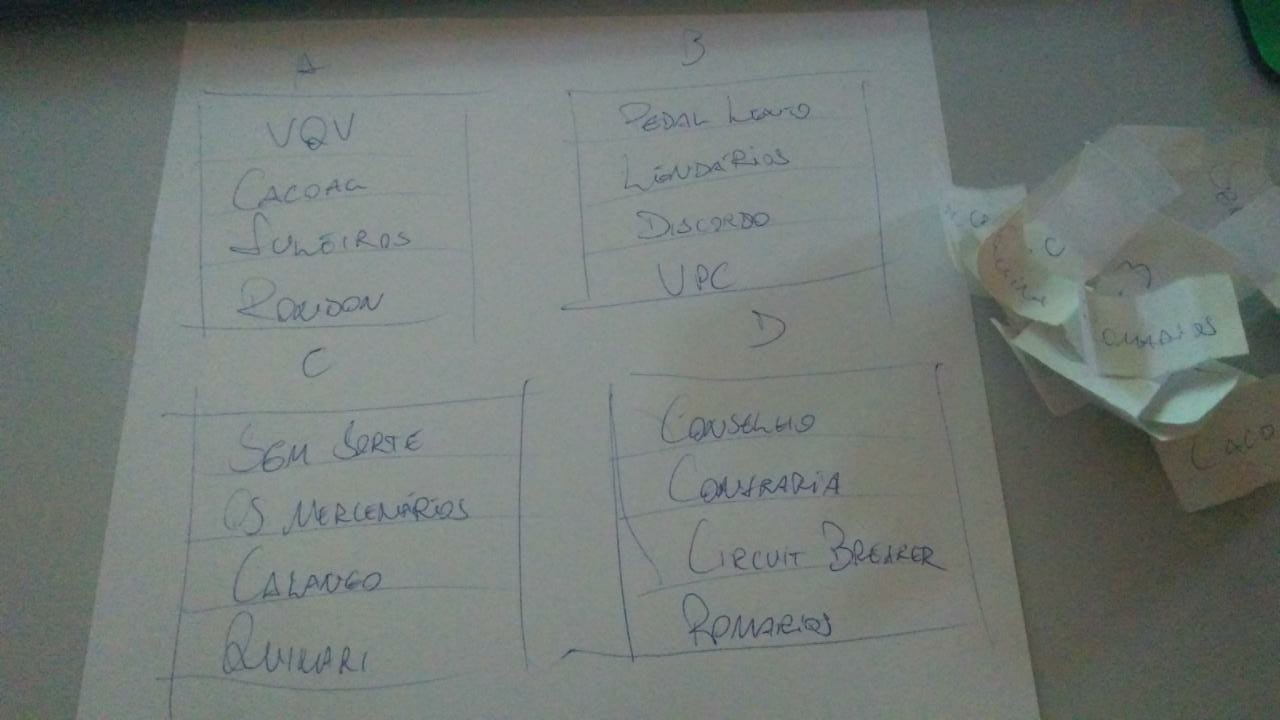 A
VQV
CACOAL
SULEIROS
RONDON
B
PEDAL LENTO
LENDÁRIOS
DISCORDO
UPC
C
SEM SORTE
OS MERCENÁRIOS
CALANGO
QUINARI
D
CONSELHO
CONFRARIA
CIRCUIT BREAKER
ROMARIOS
CACO